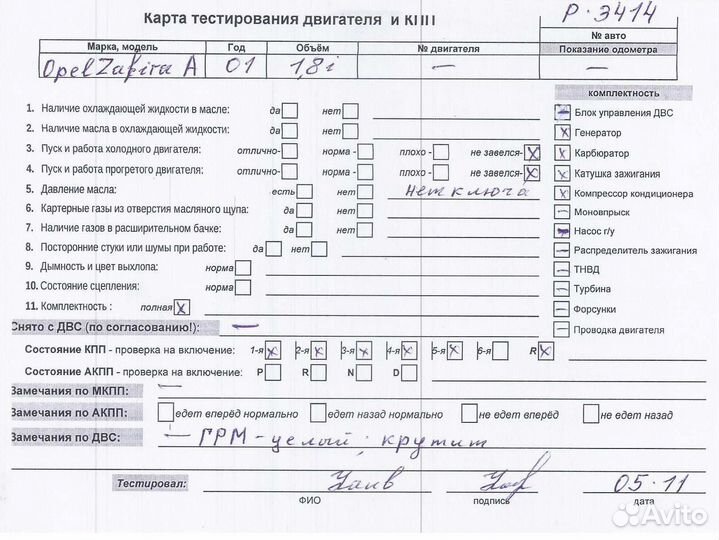 Карта тестирования двигателя и КПП
Р-3414
№ авто
Марка, модель Год Объём № двигателя Показание одометра
Opel Zafira A 01 1,8i — —
комплектность
1. Наличие охлаждающей жидкости в масле: да нет
2. Наличие масла в охлаждающей жидкости: да нет
3. Пуск и работа холодного двигателя: отлично- норма - плохо - не завелся- x
4. Пуск и работа прогретого двигателя: отлично- норма - плохо - не завелся- x
5. Давление масла: есть нет нет ключа
6. Картерные газы из отверстия масляного щупа: да нет
7. Наличие газов в расширительном бачке: да нет
8. Посторонние стуки или шумы при работе: да нет
9. Дымность и цвет выхлопа: норма
10. Состояние сцепления: норма
11. Комплектность : полная x
— Блок управления ДВС
x Генератор
x Карбюратор
x Катушка зажигания
x Компрессор кондиционера
— Моновпрыск
— Насос г/у
— Распределитель зажигания
— ТНВД
— Турбина
— Форсунки
— Проводка двигателя
Снято с ДВС (по согласованию!): —
Состояние КПП - проверка на включение: 1-я x 2-я x 3-я x 4-я x 5-я x 6-я R x
Состояние АКПП - проверка на включение: P R N D
Замечания по МКПП: —
Замечания по АКПП: едет вперёд нормально едет назад нормально не едет вперёд не едет назад
Замечания по ДВС: — ГРМ - целый; крутит
Тестировал: 05.11
ФИО подпись дата
Avito